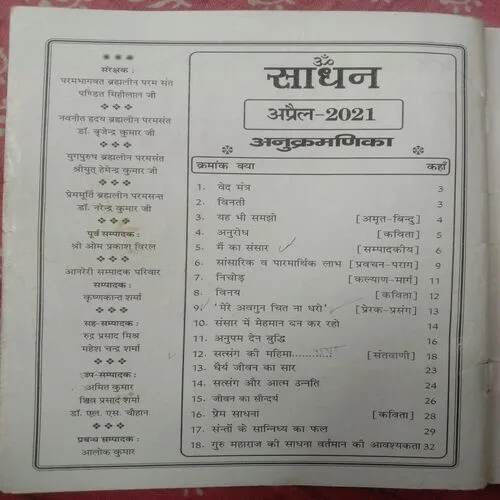 संरक्षक :
परमभागवत ब्रह्मलीन परम संत
पण्डित मिहीलाल जी
नवनीत हृदय ब्रह्मलीन परमसंत
डॉ. बृजेन्द्र कुमार जी
युगपुरुष ब्रह्मलीन परमसंत
श्रीयुत् हेमेन्द्र कुमार जी
प्रेममूर्ति ब्रह्मलीन परमसन्त
डॉ. नरेन्द्र कुमार जी
पूर्व सम्पादक :
श्री ओम प्रकाश विरल
आनरेरी सम्पादक परिवार
सम्पादक :
कृष्णकान्त शर्मा
सह-सम्पादक :
रुद्र प्रसाद मिश्र
महेश चन्द्र शर्मा
उप-सम्पादक :
अमित कुमार
शिव प्रसाद शर्मा
डॉ. एल. एस. चौहान
प्रबन्ध सम्पादक :
आलोक कुमार
ॐ
साधन
अप्रैल-2021
अनुक्रमणिका
क्रमांक क्या कहाँ
1. वेद मंत्र 3
2. विनती 3
3. यह भी समझो [अमृत-बिन्दु] 4
4. अनुरोध [कविता] 5
5. मैं का संसार [सम्पादकीय] 6
6. सांसारिक व पारमार्थिक लाभ [प्रवचन-पराग] 9
7. निचोड़ [कल्याण-मार्ग] 11
8. विनय [कविता] 12
9. 'मेरे अवगुन चित ना धरो' [प्रेरक-प्रसंग] 13
10. संसार में मेहमान बन कर रहो 14
11. अनुपम देन बुद्धि 16
12. सत्संग की महिमा............ [संतवाणी] 18
13. धैर्य जीवन का सार 23
14. सत्संग और आत्म उन्नति 24
15. जीवन का सौन्दर्य 26
16. प्रेम साधना [कविता] 28
17. संन्तों के सान्निध्य का फल 29
18. गुरु महाराज की साधना वर्तमान की आवश्यकता 32